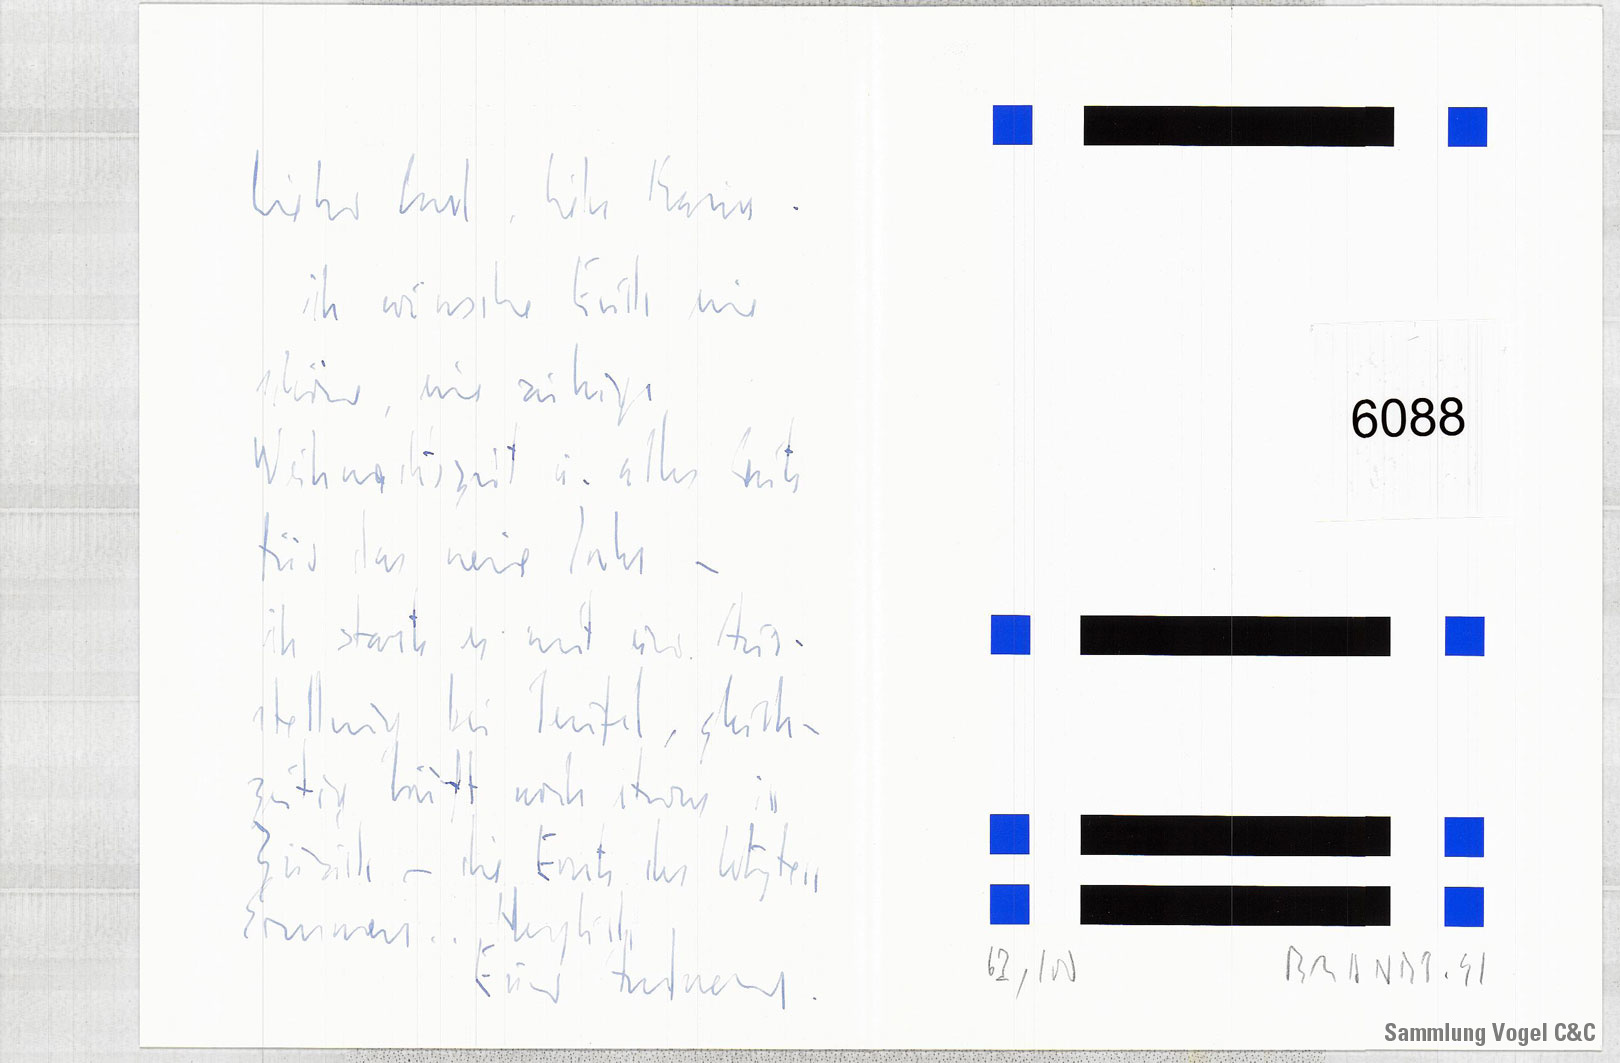 ich wünsche Euch eine
schöne, eine ruhige
Weihnachtszeit u. alles Gute
für das neue Jahr –
ich starte es mit einer Aus-
stellung bei Teufel, gleich-
zeitig läuft noch etwas in
Zürich – die Ernte des letzten
Sommers... Herzlich
Euer
6088
62/100
BRANDT. 91
Sammlung Vogel C&C